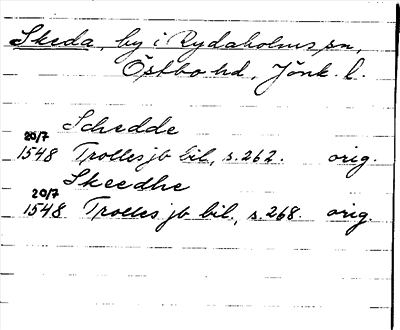 Skeda, by i Rydaholms sn,
Östbo hd, Jönk. l.
Schedde
20/7
1548 Trolles jb bil., s. 262. orig.
Skeedhe
20/7
1548 Trolles jb bil., s. 268. orig.